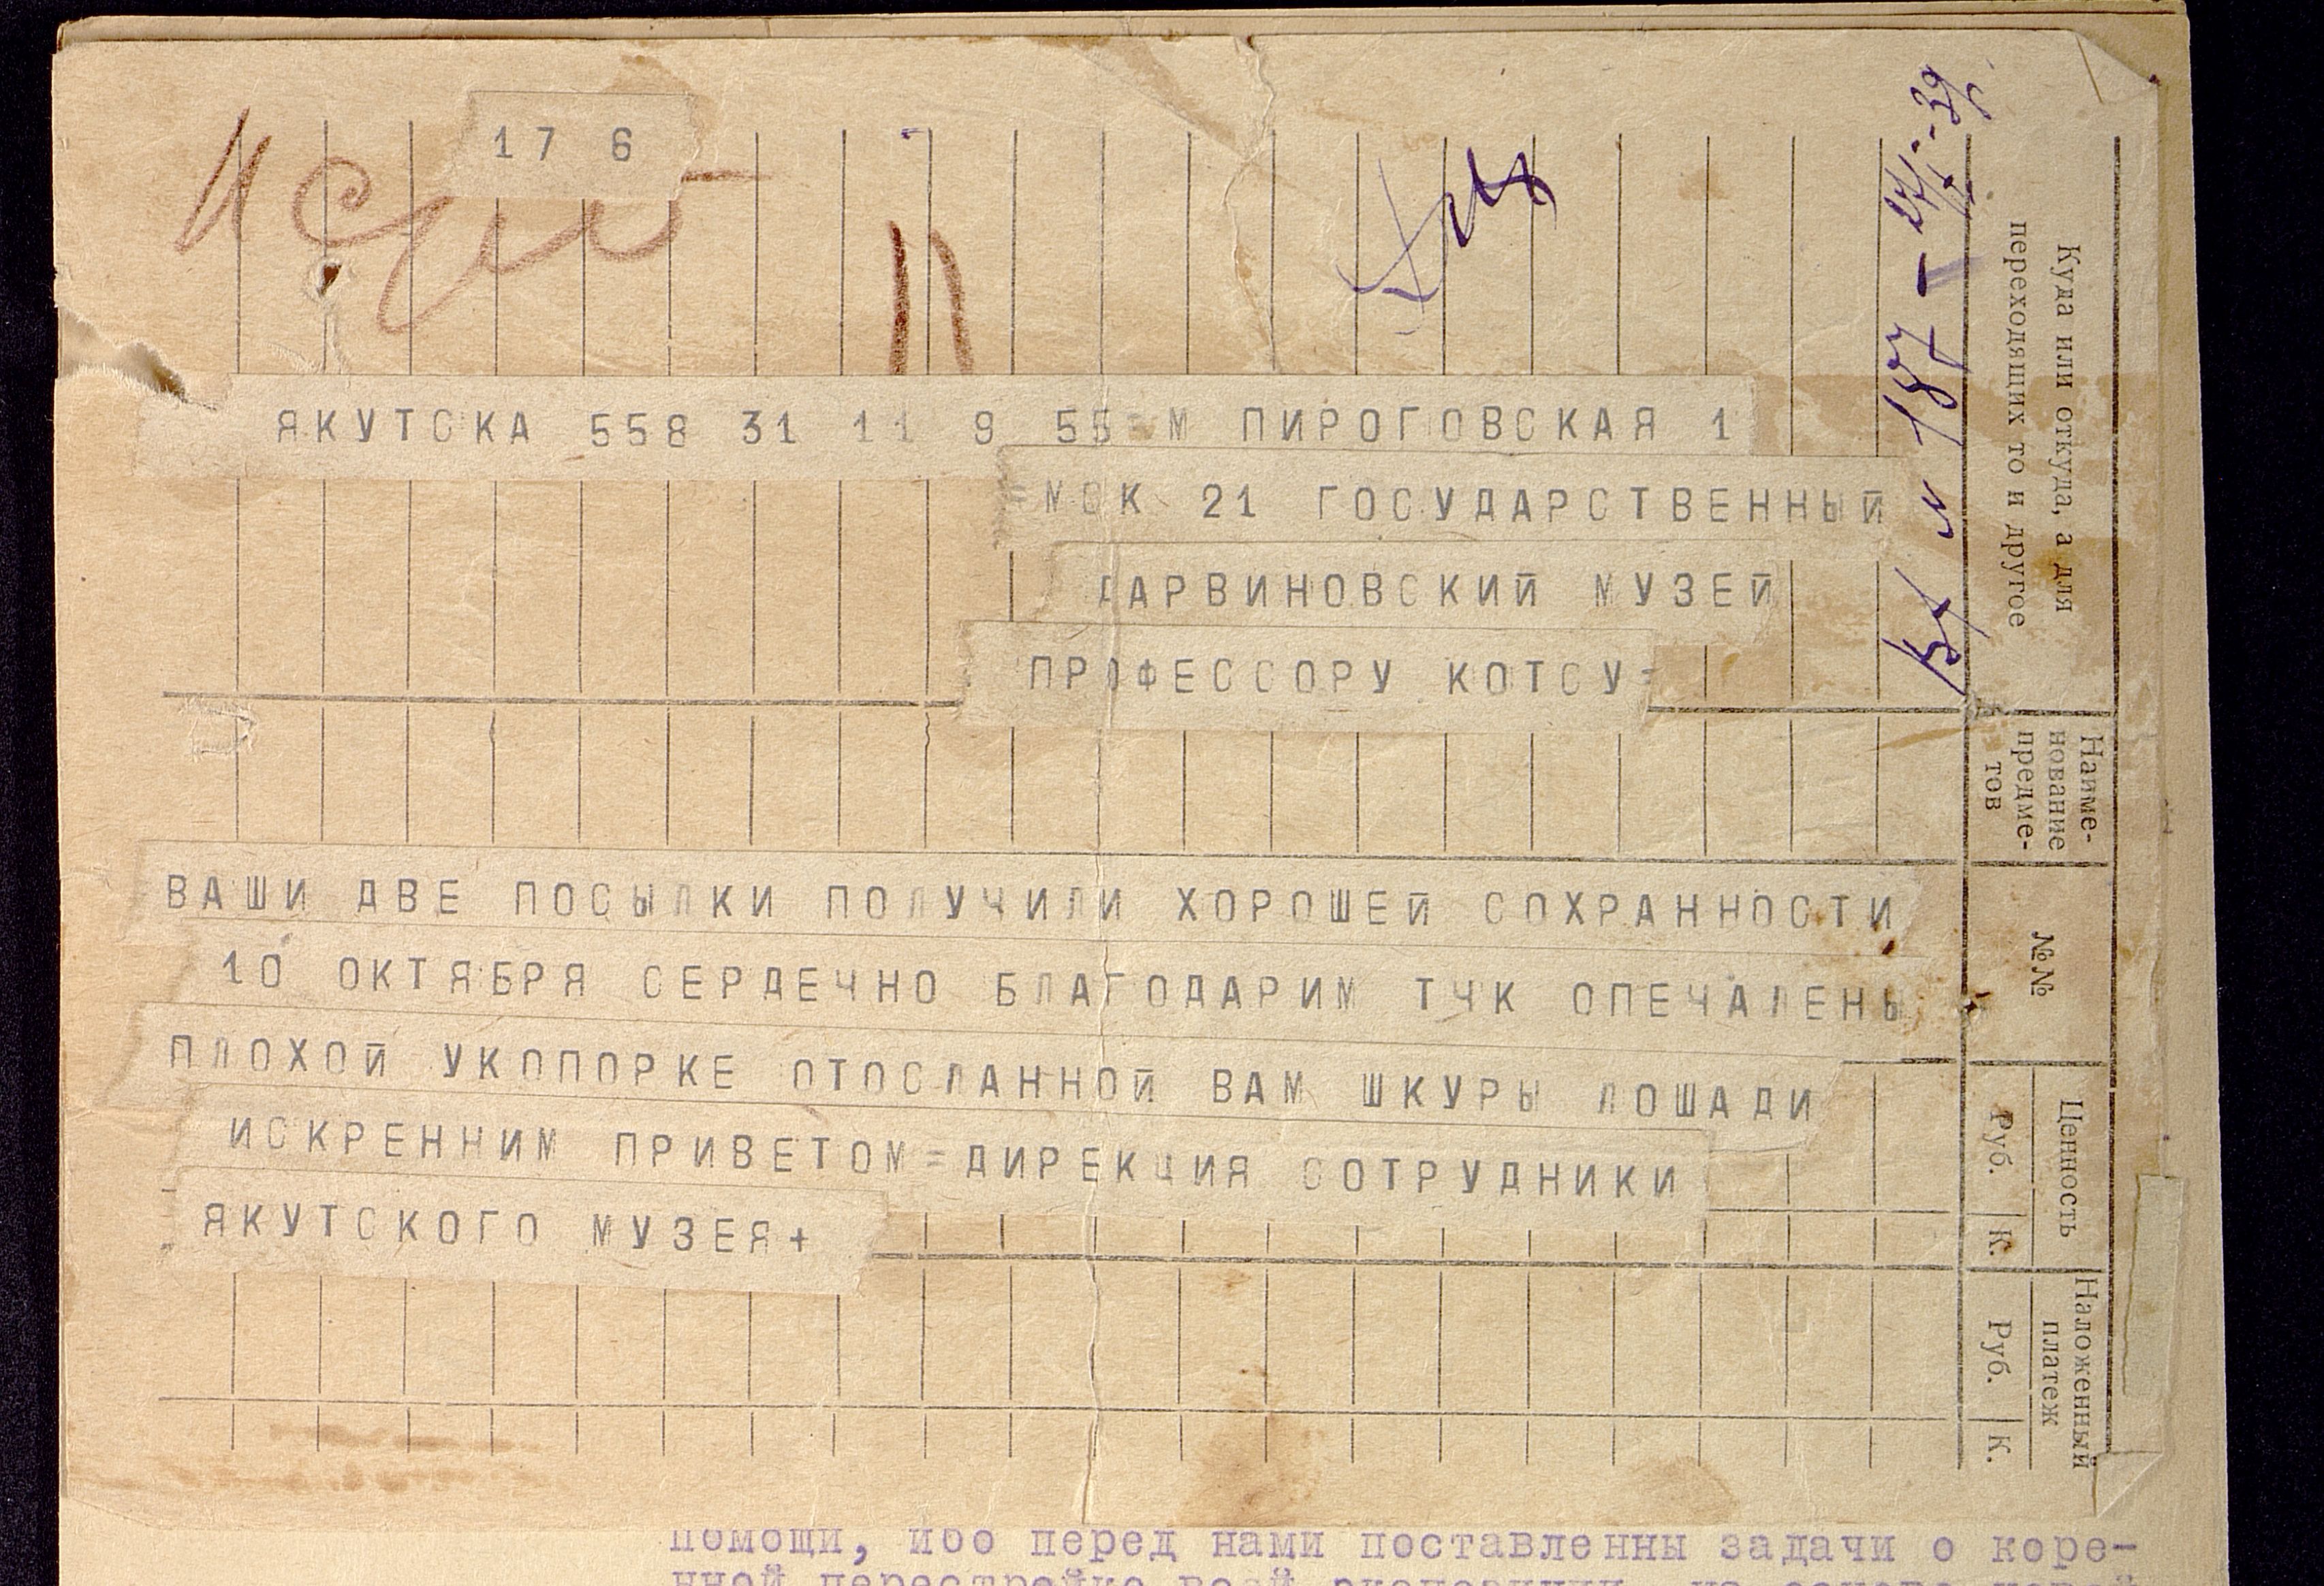 17 6
ЯКУТСКА 558 31 11 9 55 = М ПИРОГОВСКАЯ 1
=МСК 21 ГОСУДАРСТВЕННЫЙ
ДАРВИНОВСКИЙ МУЗЕЙ
ПРОФЕССОРУ КОТСУ=
ВАШИ ДВЕ ПОСЫЛКИ ПОЛУЧИЛИ ХОРОШЕЙ СОХРАННОСТИ
10 ОКТЯБРЯ СЕРДЕЧНО БЛАГОДАРИМ ТЧК ОПЕЧАЛЕНЫ
ПЛОХОЙ УКОПОРКЕ ОТОСЛАННОЙ ВАМ ШКУРЫ ЛОШАДИ
ИСКРЕННИМ ПРИВЕТОМ=ДИРЕКЦИЯ СОТРУДНИКИ
ЯКУТСКОГО МУЗЕЯ+
Куда или откуда, а для
переходящих то и другое
Наиме-
нование
предме-
тов
№№
Ценность
Руб. К.
Наложенный
платеж
Руб. К.
187 -
помощи, ибо перед нами поставленны задачи о коре-